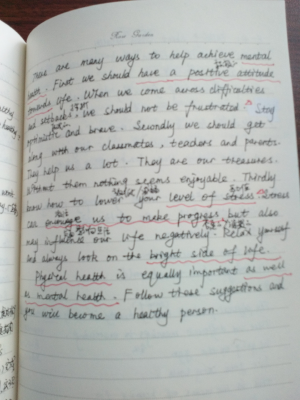 There are many ways to help achieve mental
health. First we should have a positive attitude
towards life. When we come across difficulties
and setbacks, we should not be frustrated. Stay
optimistic and brave. Secondly we should get
along with our classmates, teachers and parents.
They help us a lot. They are our treasures.
Without them nothing seems enjoyable. Thirdly
know how to lower your level of stress. Stress
can us to make progress but also
may influence our life negatively. Relax yourself
and always look on the bright side of life.
Physical health is equally important as well
as mental health. Follow these suggestions and
you will become a healthy person.